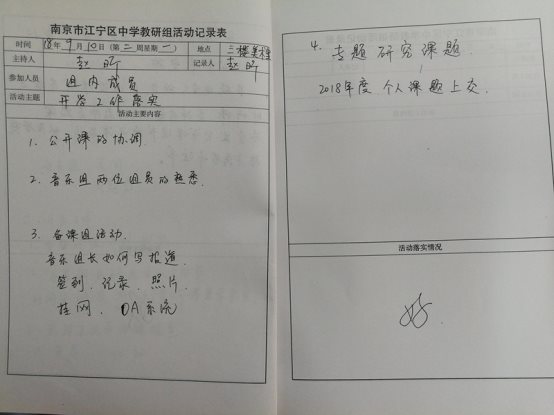 南京市江宁区中学教研组活动记录表
时间 18年9月10日(第二周星期一) 地点 三楼美术室
主持人 赵昕 记录人 赵昕
参加人员 组内成员
活动主题 开学工作落实
活动主要内容
1. 公开课的协调
2. 音乐组两位组员的熟悉.
3. 备课组活动.
音乐组长如何写报道.
签到、记录、照片.
挂网、OA系统
4. 专题研究课题.
2018年度个人课题上交.
活动落实情况
好